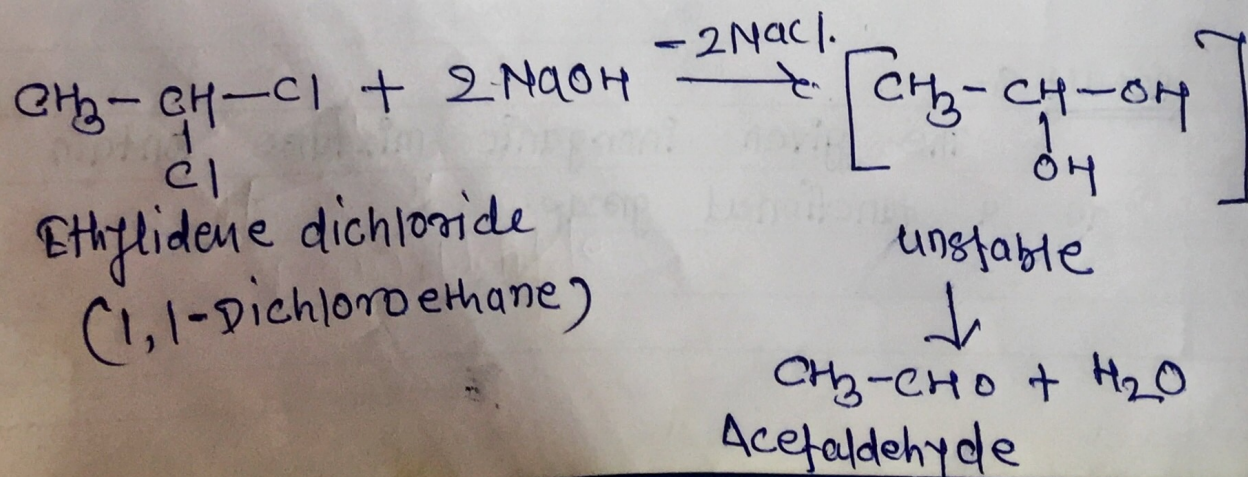 -2NaCl.
CH3-CH-Cl + 2NaOH → [CH3-CH-OH]
Cl
OH
Ethylidene dichloride
(1,1-Dichloroethane)
unstable
↓
CH3-CHO + H2O
Acetaldehyde